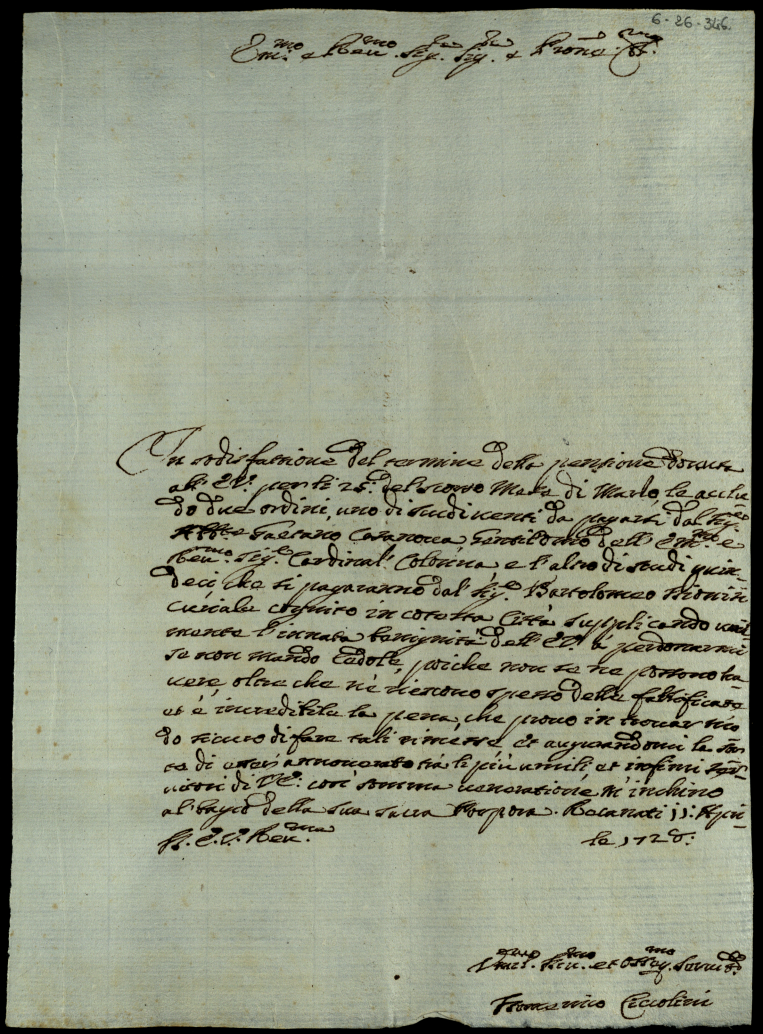 6-26-346.
Em.mo e Rev.mo Sig. Sig. e Prone
In sodisfattione del termine della pensione dovuta
all' E.V. per li 25. del scorso Mese di Marzo, le acclu-
do due ordini, uno di scudi venti da pagarsi dal Sig.re
Abb.e Gaetano Casanova Gentilomo dell' Em.mo e
Rev.mo Sig.e Cardinal' Colonna, e l'altro di scudi quin-
deci che si pagaranno dal Sig.e Bartolomeo
curiale cognito in cotesta Città supplicando umil-
mente l'innata benignità dell' E.V. à perdonarmi
se non mando Cedole, poiche non se ne possono ha-
vere, oltre che ne vienono spesso delle falsificate
et è incredibile la pena, che provo in trovar mo-
do sicuro di fare tali rimesse et augurandomi la sor-
te di esser annoverato trà li più umili, et infimi ser-
vitori di V.E. con somma veneratione m'inchino
al bagio della sua sacra Porpora. Recanati 11: Apri-
D. E. V. Rev.ma
le 1728.
Um.mo Dev.mo et Oss.mo Servit.e
Ciccolini